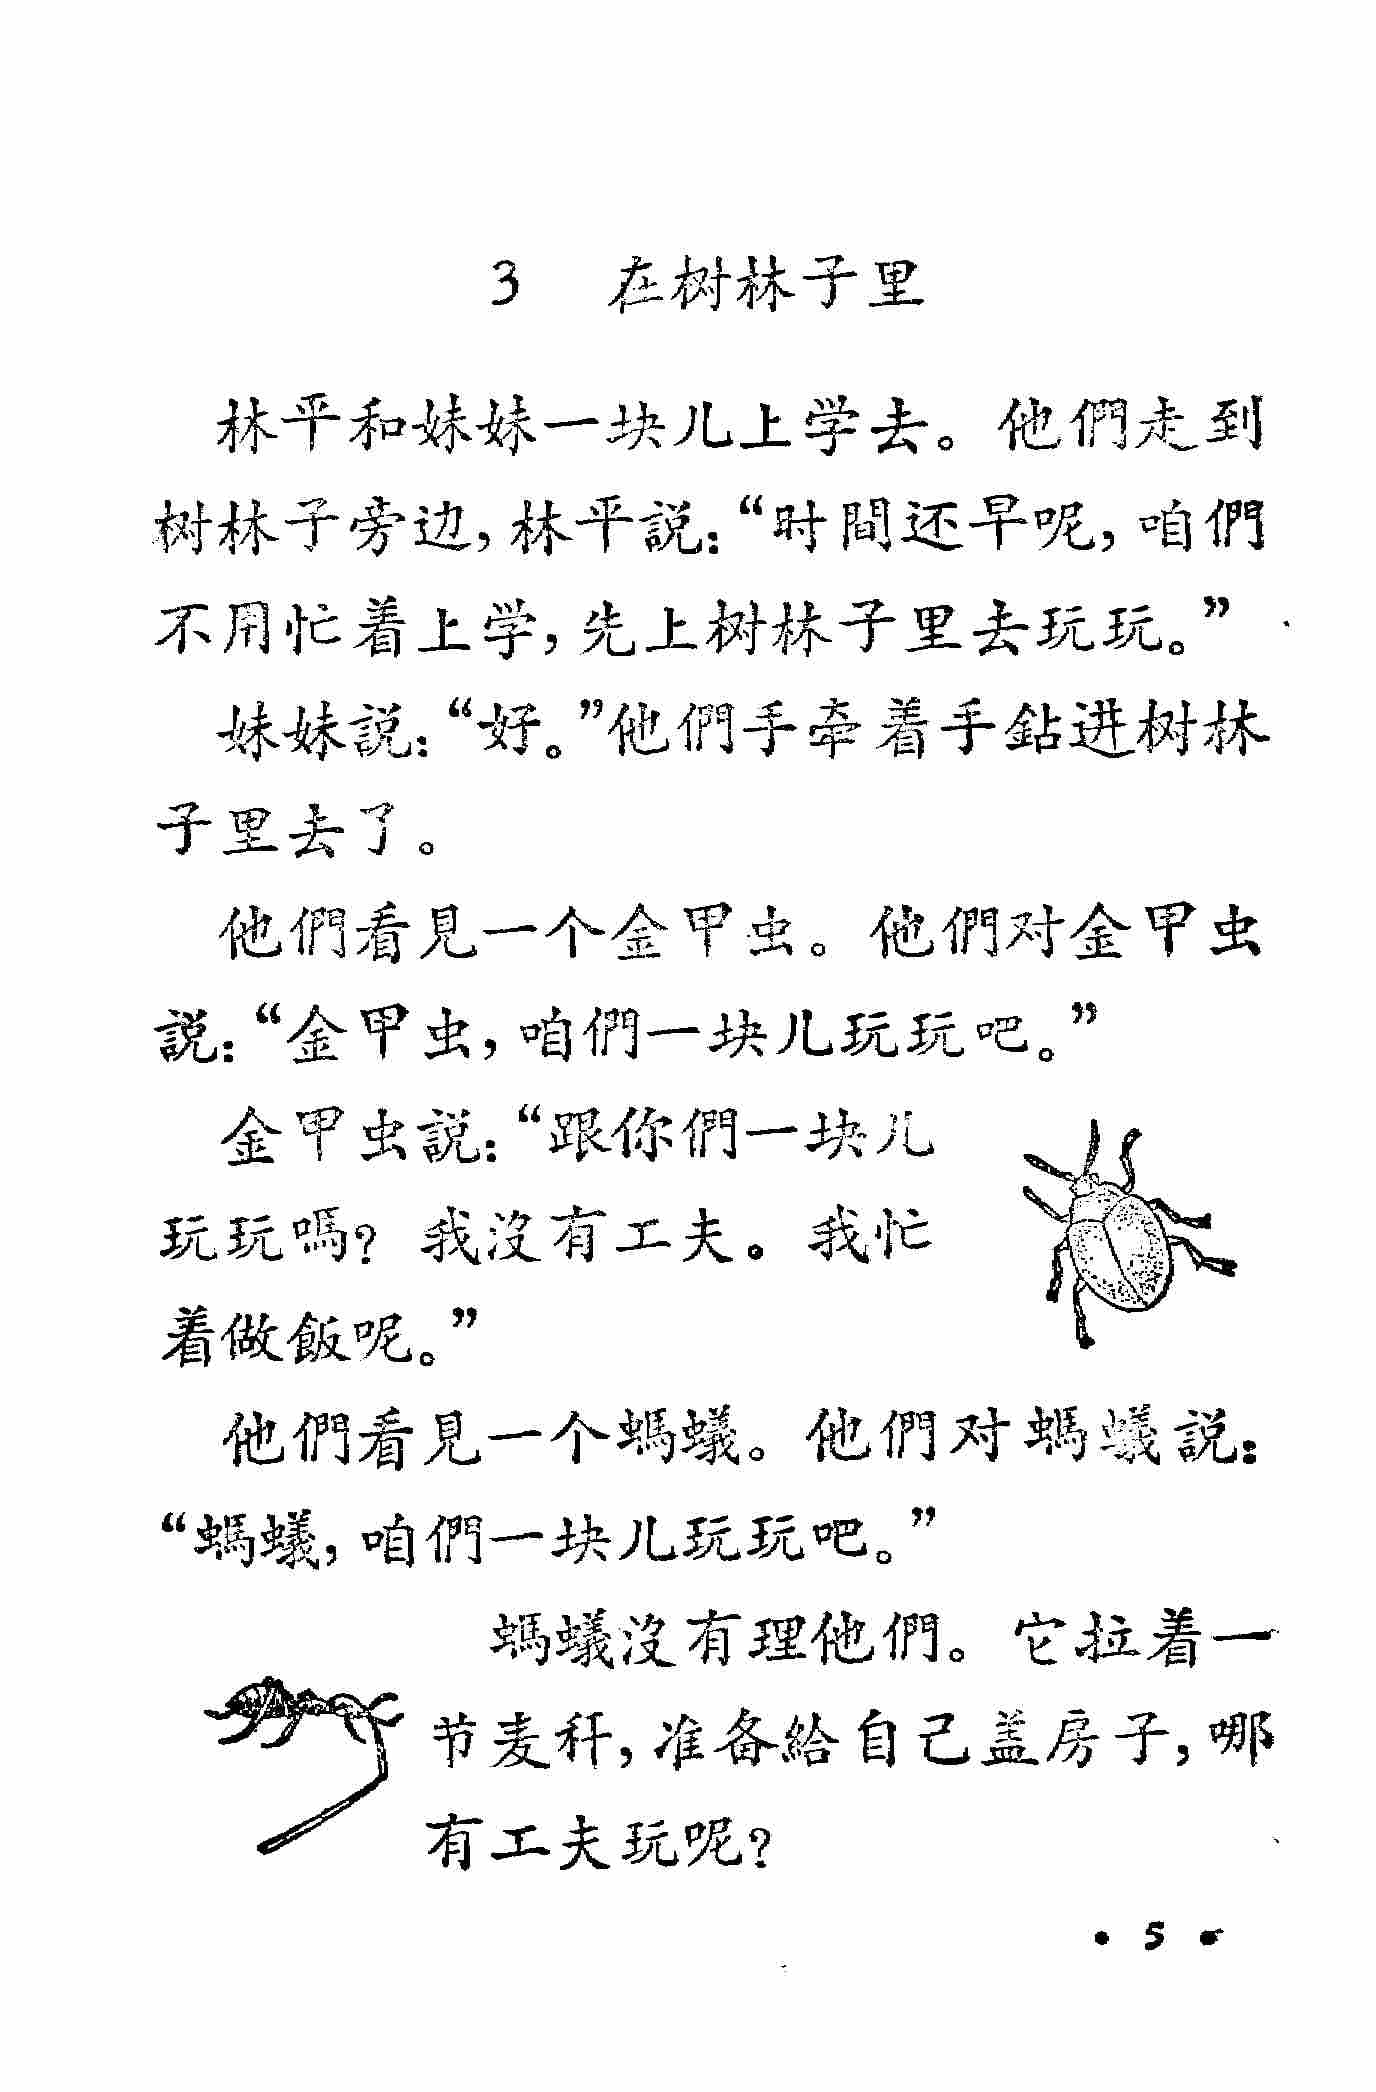 3 在树林子里
林平和妹妹一块儿上学去。他們走到
树林子旁边，林平說：“时間还早呢，咱們
不用忙着上学，先上树林子里去玩玩。”
妹妹說：“好。”他們手牵着手鉆进树林
子里去了。
他們看見一个金甲虫。他們对金甲虫
說：“金甲虫，咱們一块儿玩玩吧。”
金甲虫說：“跟你們一块儿
玩玩嗎？我沒有工夫。我忙
着做飯呢。”
他們看見一个螞蟻。他們对螞蟻說：
“螞蟻，咱們一块儿玩玩吧。”
螞蟻沒有理他們。它拉着一
节麦秆，准备給自己盖房子，哪
有工夫玩呢？
• 5 •